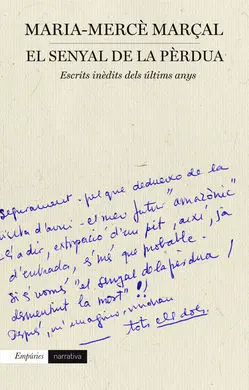 MARIA-MERCÈ MARÇAL
EL SENYAL DE LA PÈRDUA
Escrits inèdits dels últims anys
segurament - pel que dedueixo de la
visita d'avui - el meu futur "amazònic"
És a dir, extirpació d'un pit, així, ja
d'entrada, s'més que probable.
Si és només "el senyal de la pèrdua /
desmentint la mort" !
Després, m'imagino, vindran
tots els dols.
Empúries
narrativa